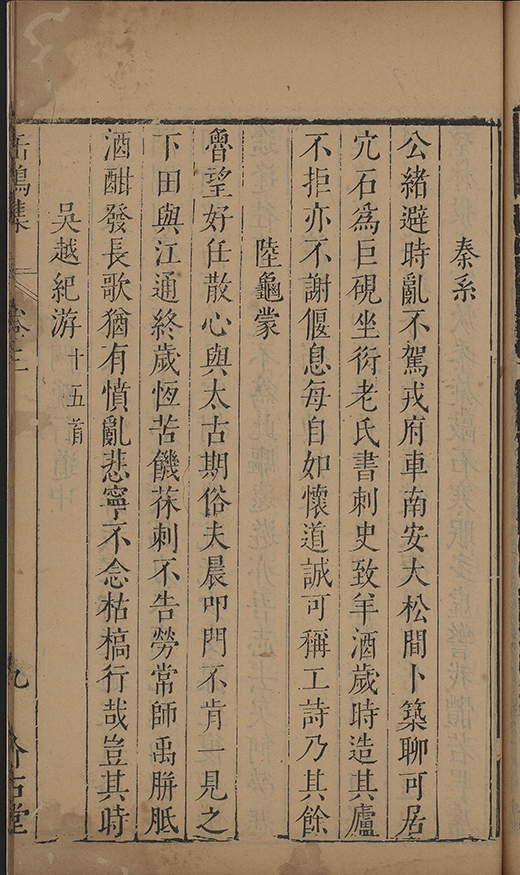 秦系
公緒避時亂不駕戎府車南安大松間卜築聊可居
穴石為巨硯坐衍老氏書刺史致羊酒歲時造其廬
不拒亦不謝偃息每自如懷道誠可稱工詩乃其餘
陸龜蒙
魯望好任散心與太古期俗夫晨叩門不肯一見之
下田與江通終歲恆苦饑茠刺不告勞常師禹胼胝
酒酣發長歌猶有憤亂悲寧不念枯槁行哉豈其時
吳越紀游十五首
鳴集
卷三
九
古堂